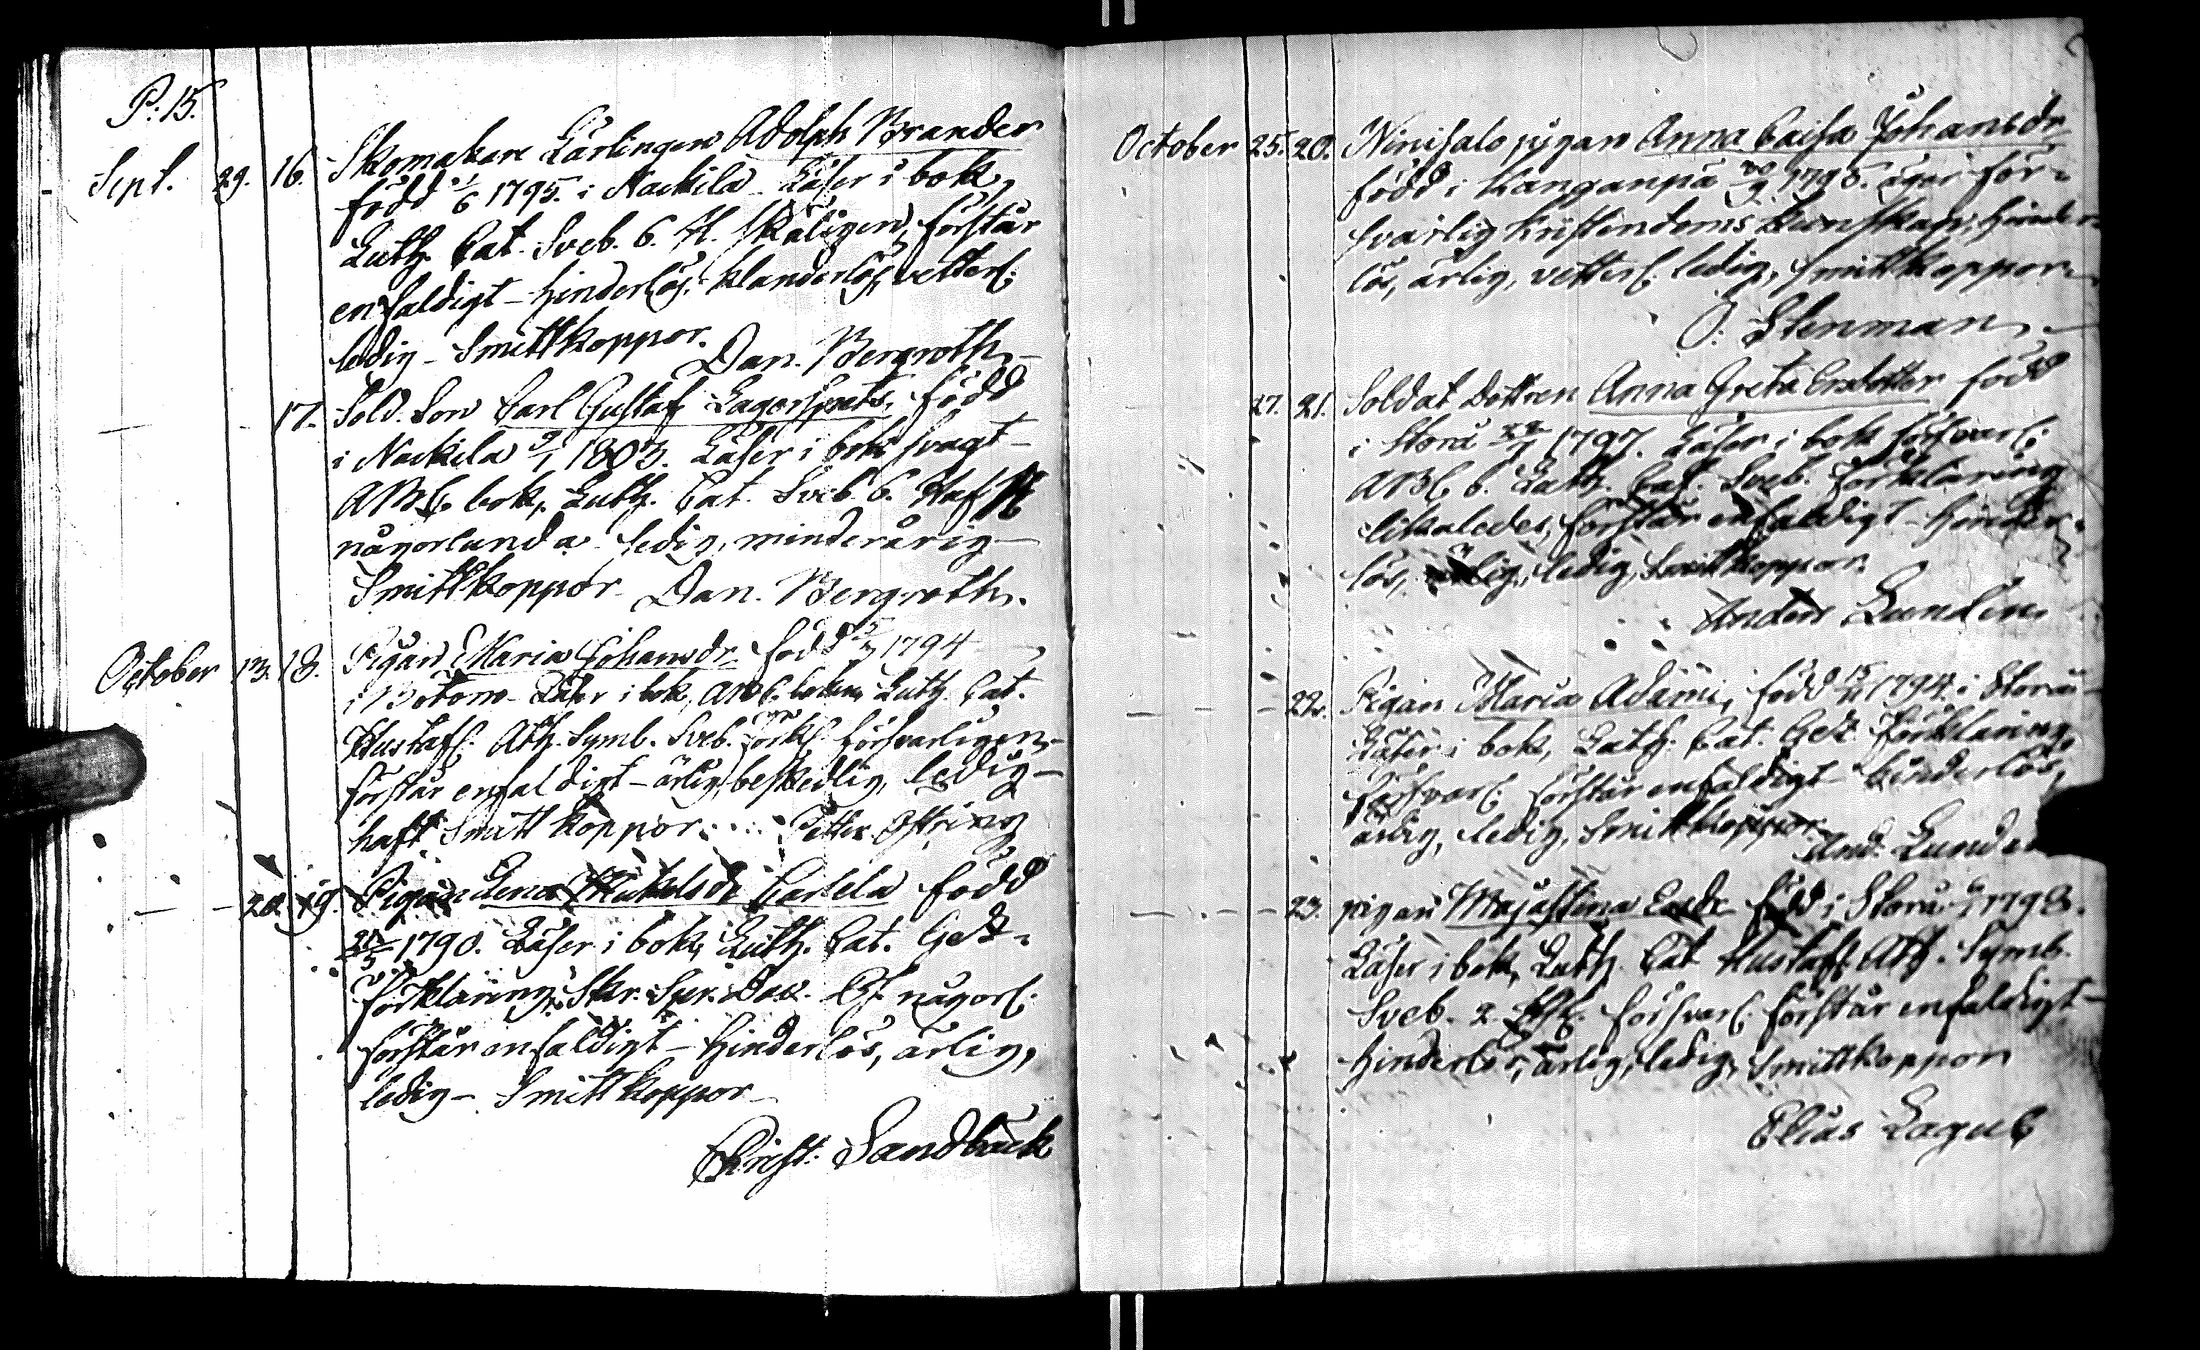 P. 15.
Sept. 29. 16. Skomakare Lärlingen Adolph Brander
född 1/6 1795. i Nackila Läser i bok,
Luth. Cat. Sveb. 6. H. skäligen, förstår
enfaldigt - hinderlös, klanderlös, vetterl.
ledig - Smittkoppor.
Dan. Bergroth
17. Sold. Son Carl Gustaf Lagerspets, född
i Nackila 9/1 1803. Läser i bok svagt -
ABC bok, Luth. Cat. Sveb. 6. Haf
någorlunda - ledig, minderårig -
Smittkoppor - Dan. Bergroth.
October 13. 18. Pigan Maria Johansdr. född 1794
i Botom - Läser i bok, ABC boken, Luth. Cat.
Hustafl. Ath. Symb. Sveb. Förkl. försvarligen,
förstår enfaldigt - ärlig, beskedlig, ledig -
haft Smittkoppor. Petter
20. 19. Pigan Lena Michelsdr född
1790. Läser i bok, Luth. Cat. Gez.
Förklaring, Skr. Spr. Dav. någorl.
förstår enfaldigt - hinderlös, ärlig,
ledig - Smittkoppor
Christ. Sandbäck
October 25. 20. Niinisalo pigan Anna Caisa Johansdr
född i Kanganpä 1795. äger för-
svarlig kristendoms kunskap, hinder-
lös, ärlig, vetterl. ledig, smittkoppor.
O. Stenman
27. 21. Soldat Dottren Anna Greta Ersdotter född
i Storå 1797. Läser i bok försvarl.
ABC b. Luth. Cat. Sveb. Förklaring
likaledes, förstår enfaldigt - hinder-
lös, ärlig, ledig, Smittkoppor.
Anders Lundin
22. Pigan Maria Adami, född 1794 i Storå
Läser i bok, Luth. Cat. Gez. Förklaring
försvarl. förstår enfaldigt - hinderlös,
ärlig, ledig, Smittkoppor
And.
23. pigan Majastina född i Storå 1798.
Läser i bok, Luth. Cat. Hustafl. Ath. Symb.
Sveb. 2. försvarl. förstår enfaldigt -
hinderlös, ärlig, ledig, Smittkoppor
Elias Lagus